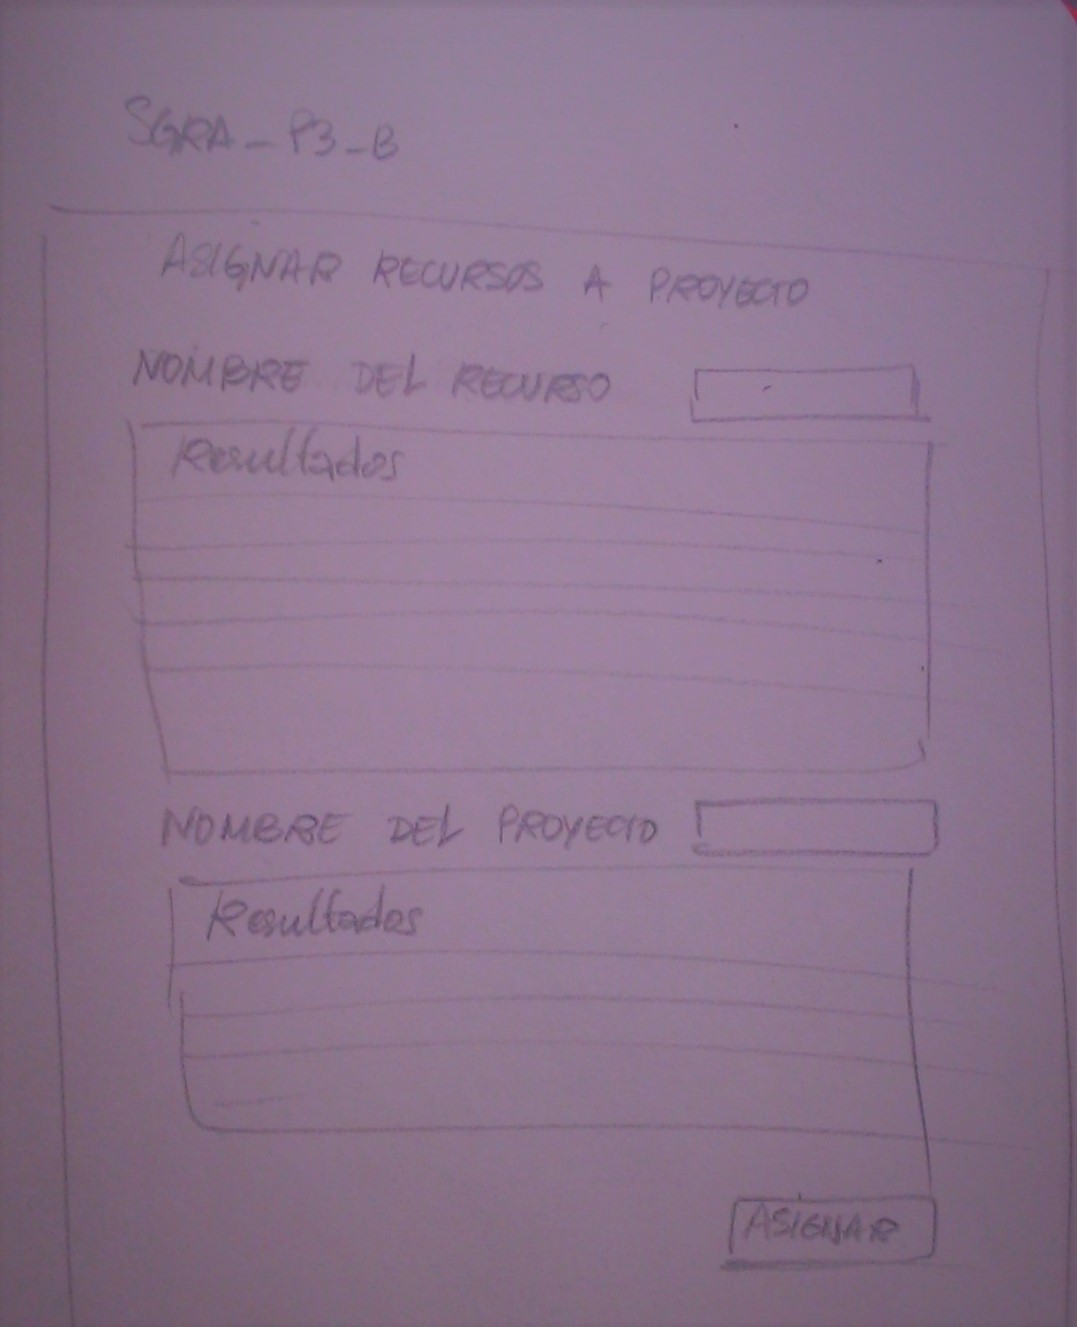 SGRA_P3_B
ASIGNAR RECURSOS A PROYECTO
NOMBRE DEL RECURSO
Resultados
NOMBRE DEL PROYECTO
Resultados
ASIGNAR